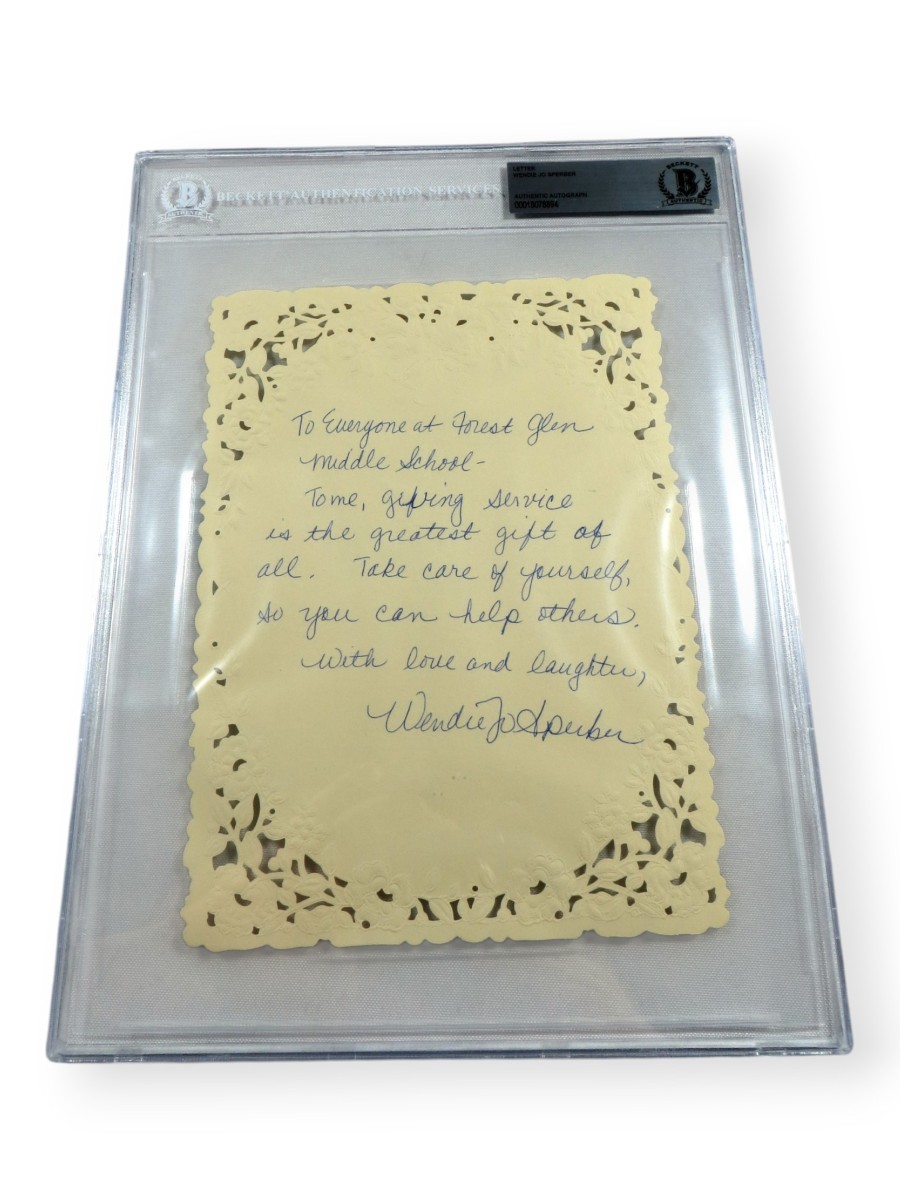 BECKETT AUTHENTICATION SERVICES
B
AUTHENTIC
LETTER
WENDIE JO SPERBER
AUTHENTIC AUTOGRAPH
00015076894
BECKETT
B
AUTHENTIC
To Everyone at Forest Glen
Middle School-
To me, giving service
is the greatest gift of
all. Take care of yourself,
so you can help others.
With love and laughter,
Wendie Jo Sperber